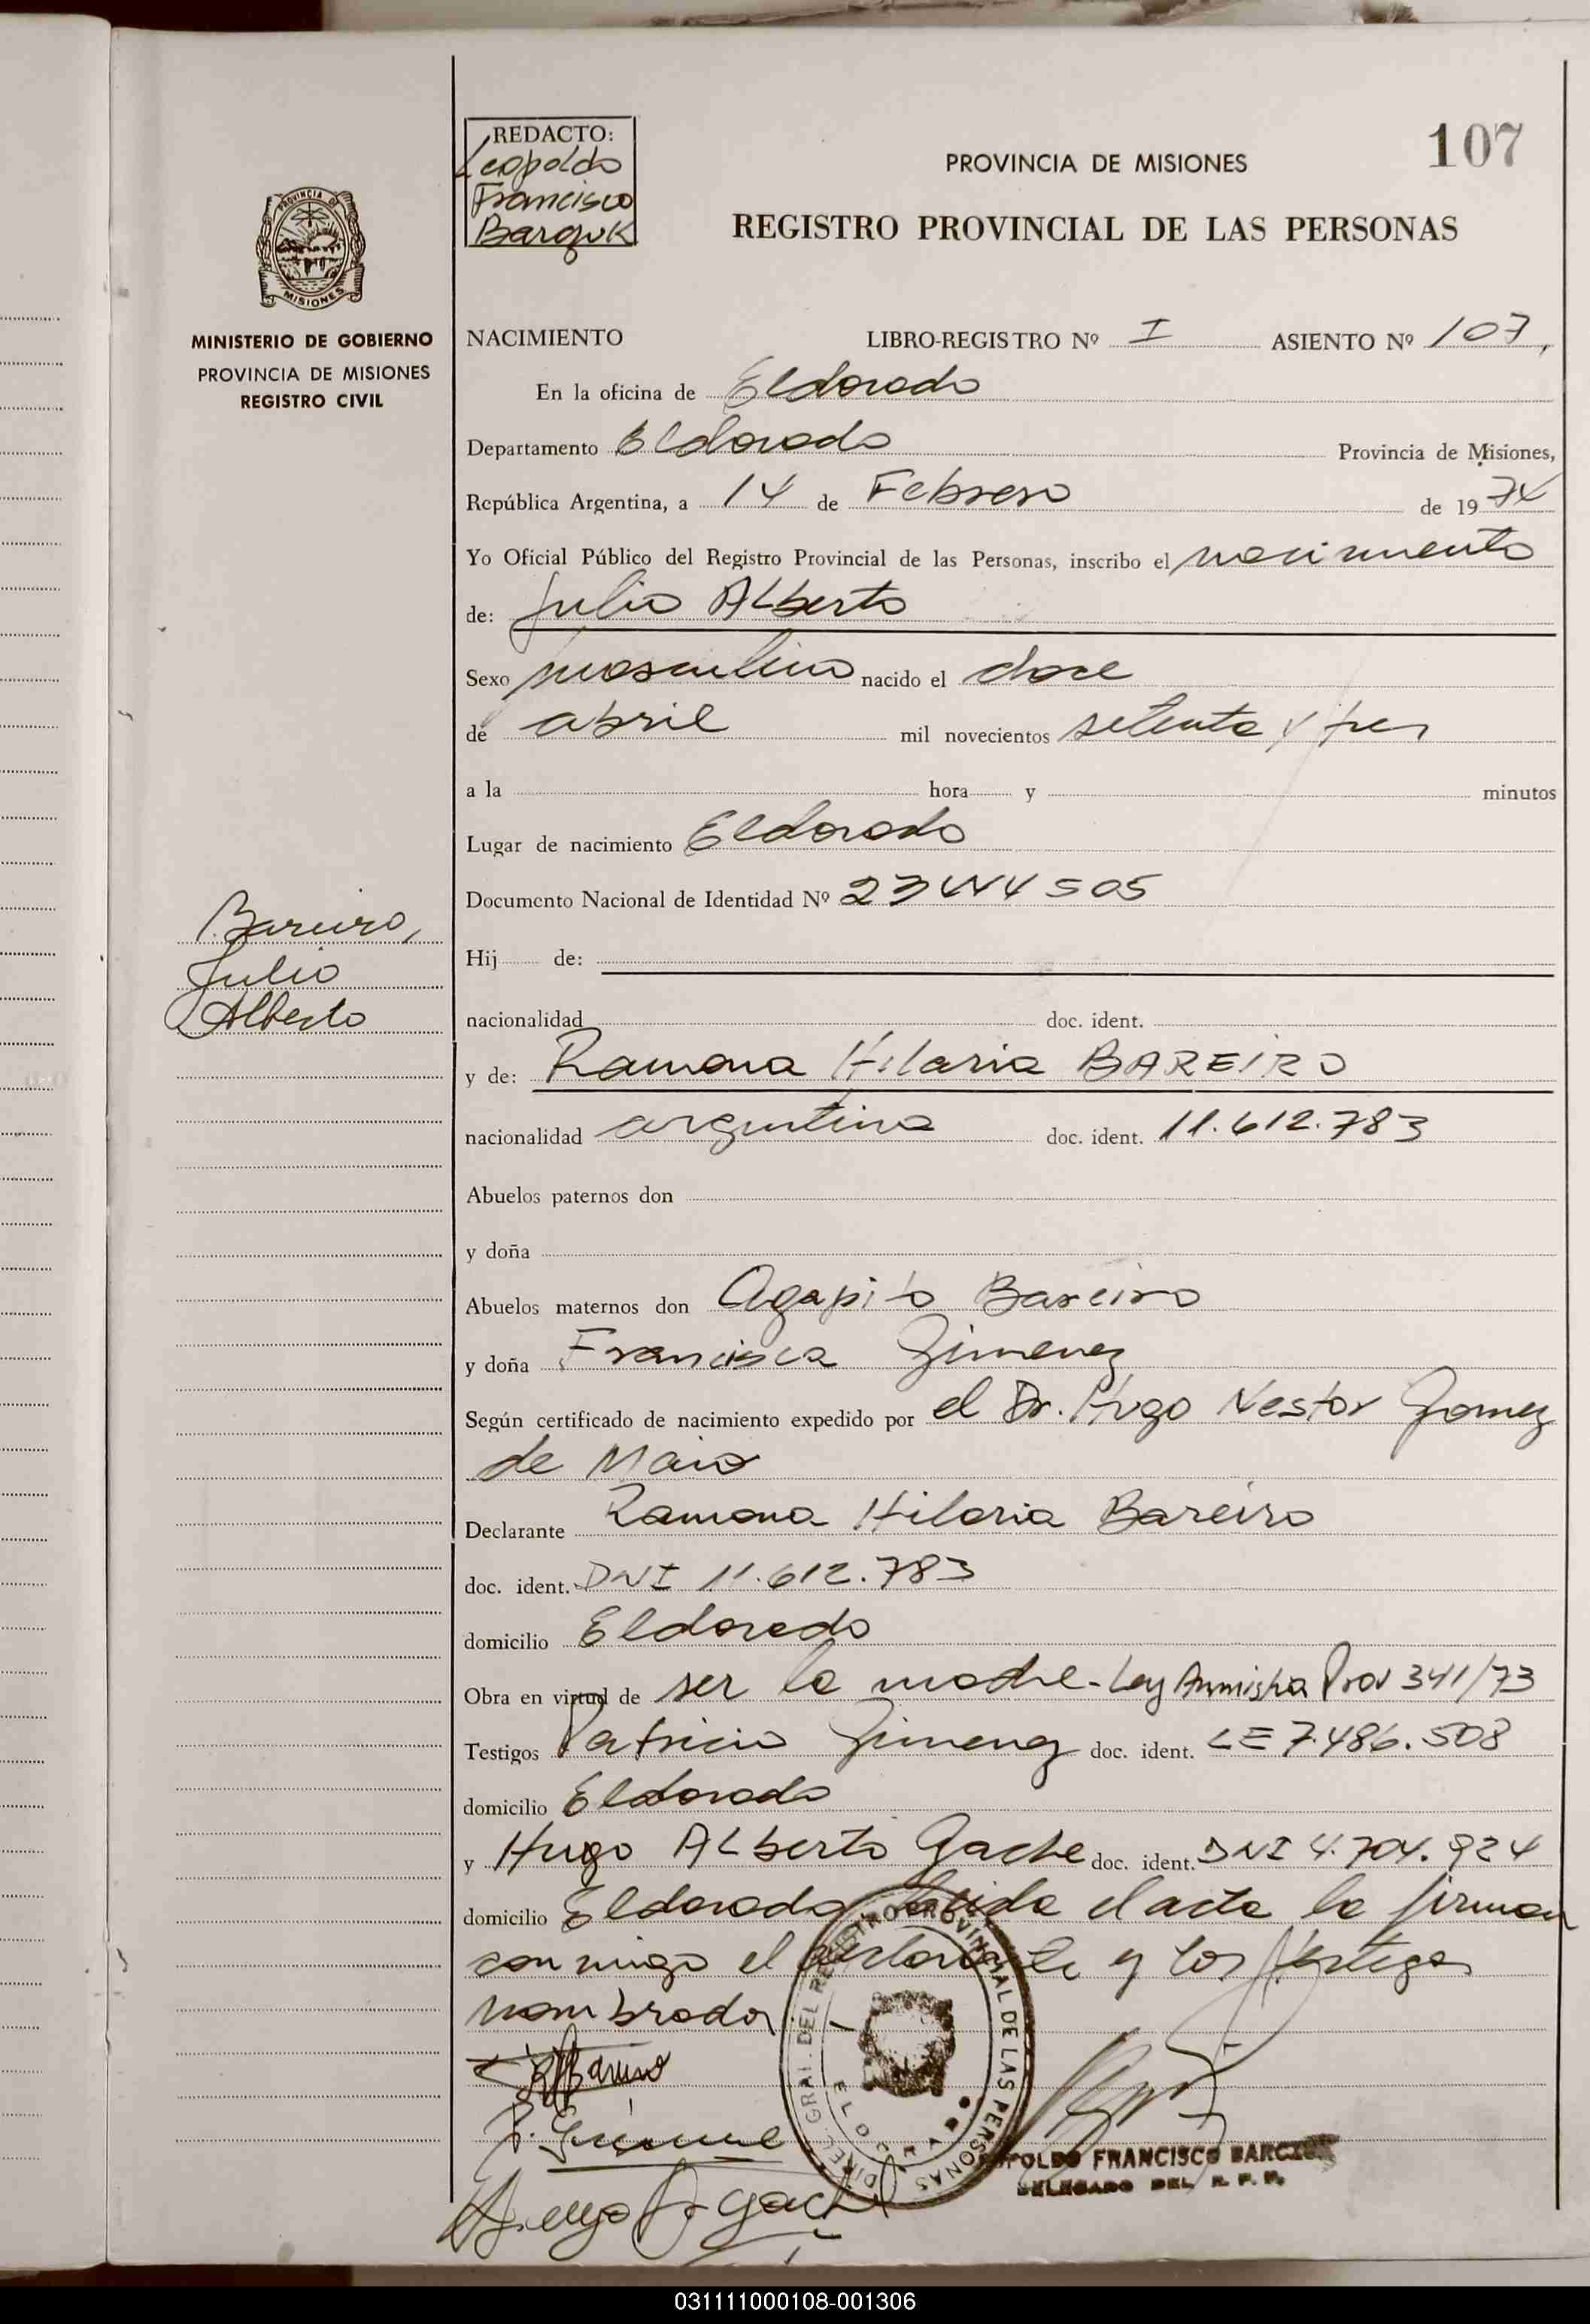 REDACTO:
Leopoldo
Francisco
Barquk
107
PROVINCIA DE MISIONES
REGISTRO PROVINCIAL DE LAS PERSONAS
PROVINCIA DE
MISIONES
MINISTERIO DE GOBIERNO
PROVINCIA DE MISIONES
REGISTRO CIVIL
NACIMIENTO LIBRO-REGISTRO Nº I ASIENTO Nº 107,
En la oficina de Eldorado
Departamento Eldorado Provincia de Misiones,
República Argentina, a 14 de Febrero de 1974
Yo Oficial Público del Registro Provincial de las Personas, inscribo el nacimiento
de: Julio Alberto
Sexo masculino nacido el doce
de abril mil novecientos setenta y tres
a la hora y minutos
Lugar de nacimiento Eldorado
Documento Nacional de Identidad Nº 23444505
Bareiro,
Julio
Alberto
Hij de:
nacionalidad doc. ident.
y de: Ramona Hilaria BAREIRO
nacionalidad argentina doc. ident. 11.612.783
Abuelos paternos don
y doña
Abuelos maternos don Agapito Bareiro
y doña Francisca Gimenez
Según certificado de nacimiento expedido por el Dr. Hugo Nestor Gomez
de Maio
Declarante Ramona Hilaria Bareiro
doc. ident. DNI 11.612.783
domicilio Eldorado
Obra en virtud de ser la madre - Ley Amnistia Prov 341/73
Testigos Patricio Gimenez doc. ident. LE 7.486.508
domicilio Eldorado
y Hugo Alberto Gache doc. ident. DNI 4.704.924
domicilio Eldorado leida el acta la firman
conmigo el declarante y los testigos
nombrados
DIREC. GRAL. DEL REGISTRO PROVINCIAL DE LAS PERSONAS
RHBareiro
P. Gimene
Hugo A Gache
LEOPOLDO FRANCISCO BARCZUK
DELEGADO DEL R. P. P.
031111000108-001306